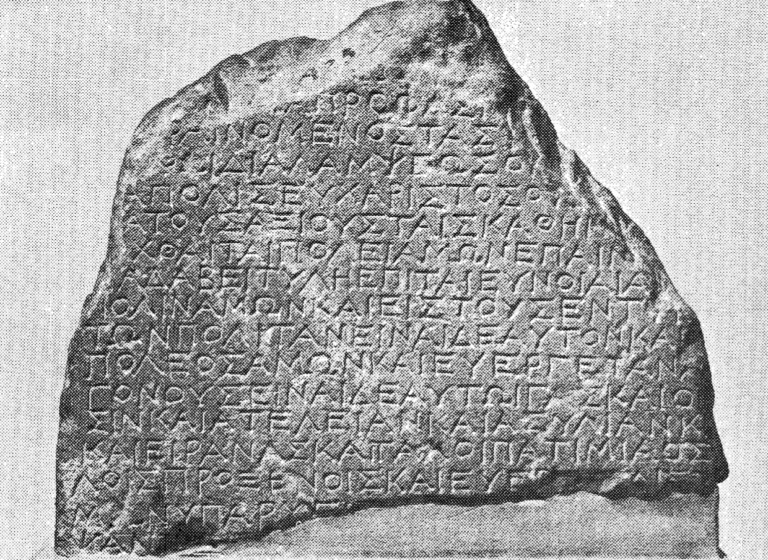 ΦΑΙΝΟΜΕΝΟΣΤΑΣ
ΑΠΟΛΙΣΕΥΧΑΡΙΣΤΟΣΟΥ
ΑΤΟΥΣΑΞΙΟΥΣΤΑΙΣΚΑΘΗΚ
ΧΘΑΙΤΑΙΠΟΛΕΙΑΜΩΝΕΠΑΙΝ
ΑΔΑΒΕΙΤΥΛΗΕΠΙΤΑΙΕΥΝΟΙΑΙΑ
ΠΟΛΙΝΑΜΩΝΚΑΙΕΙΣΤΟΥΣΕΝΤ
ΤΩΝΠΟΛΙΤΑΝΕΙΝΑΙΔΕΑΥΤΟΝΚΑ
ΠΟΛΕΟΣΑΜΩΝΚΑΙΕΥΕΡΓΕΤΑΝΚ
ΓΟΝΟΥΣΕΙΝΑΙΔΕΑΥΤΩΙΓΑΣΚΑΙΟ
ΣΙΝΚΑΙΑΤΕΛΕΙΑΝΚΑΙΑΣΥΛΙΑΝΚ
ΚΑΙΕΙΡΑΝΑΣΚΑΙΤΑΛΟΙΠΑΤΙΜΙΑΟΣ
ΛΟΙΣΠΡΟΞΕΝΟΙΣΚΑΙΕΥΕΡΓΕΤΑΙΣ
ΥΠΑΡ